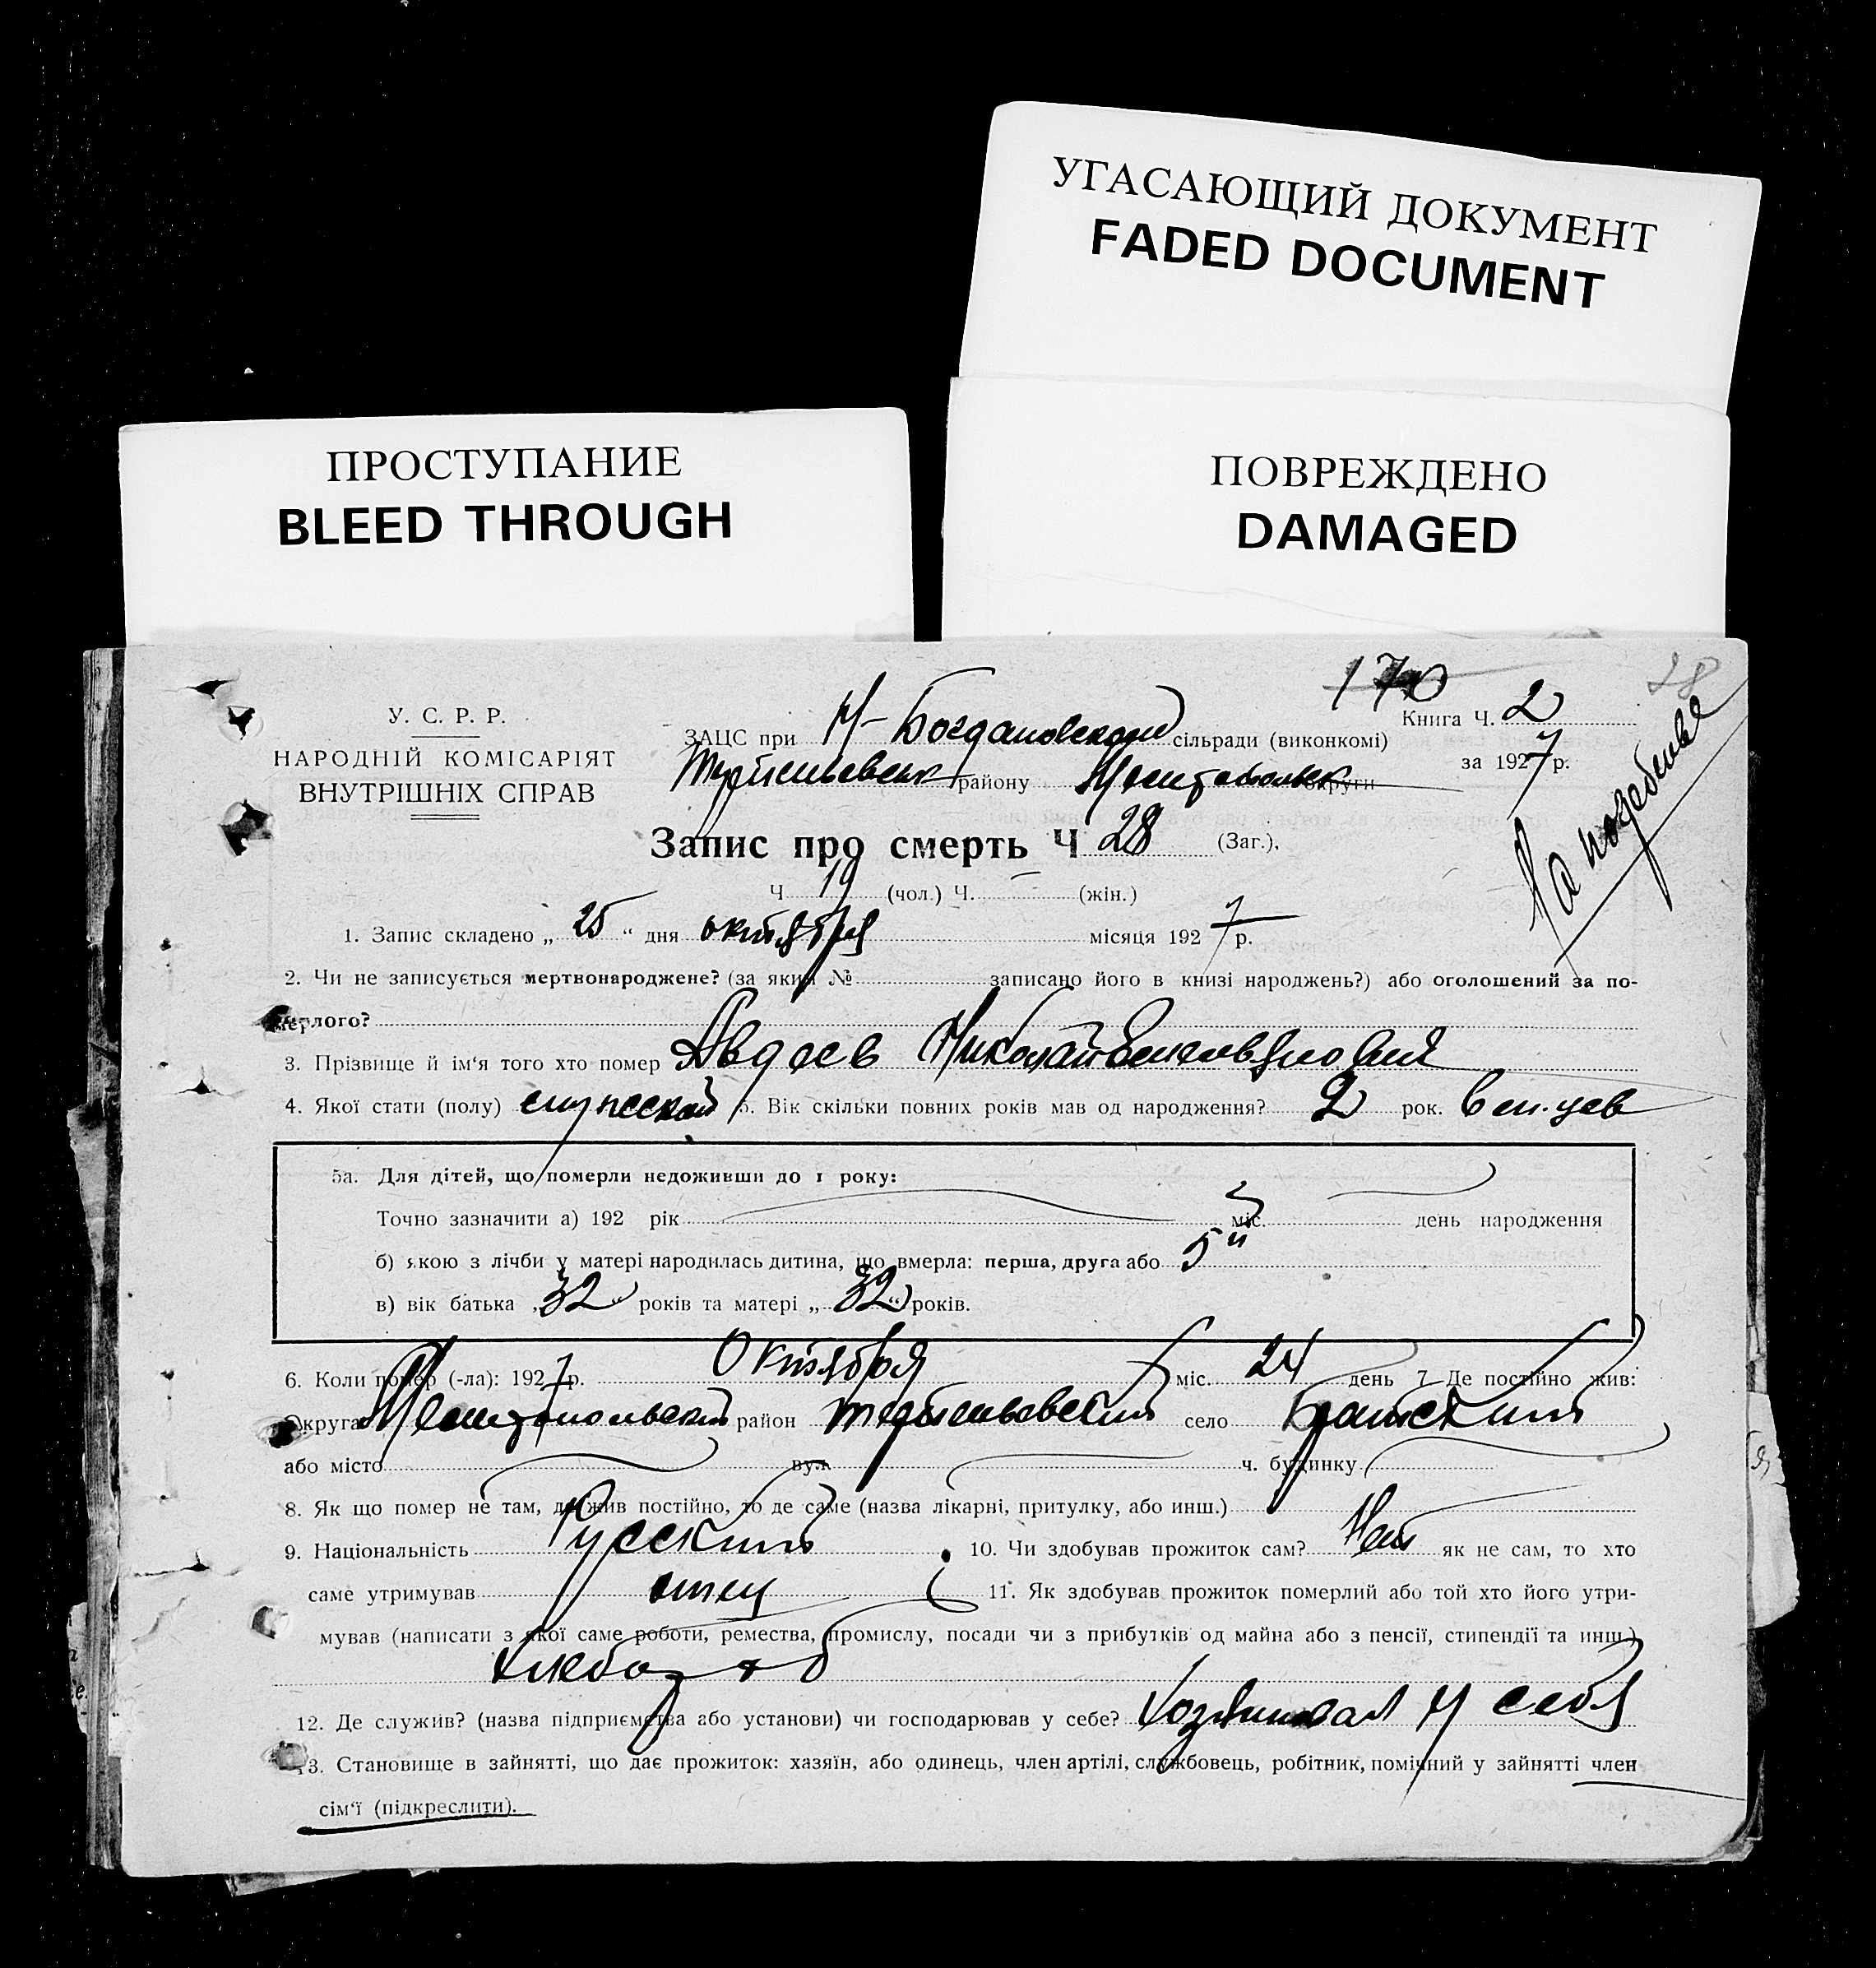 УГАСАЮЩИЙ ДОКУМЕНТ
FADED DOCUMENT
ПРОСТУПАНИЕ
BLEED THROUGH
ПОВРЕЖДЕНО
DAMAGED
170
28
У. С. Р. Р.
НАРОДНІЙ КОМІСАРІЯТ
ВНУТРІШНІХ СПРАВ
Книга Ч. 2
за 1927 р.
ЗАЦС при Н-Богдановском сільради (виконкомі)
району округи
Запис про смерть Ч 28 (Заг.),
Ч 19 (чол.) Ч. — (жін.)
1. Запис складено „25“ дня октября місяця 1927 р.
2. Чи не записується мертвонароджене? (за яким № записано його в книзі народжень?) або оголошений за по-
мерлого?
3. Прізвище й ім'я того хто помер Авдеев Николай
4. Якої стати (полу) мужской 5. Вік скільки повних років мав од народження? 2 рок.
5а. Для дітей, що померли недоживши до 1 року:
Точно зазначити а) 192 рік міс. день народження
б) якою з лічби у матері народилась дитина, що вмерла: перша, друга або 5й
в) вік батька „32“ років та матері „32“ років.
6. Коли помер (-ла): 1927 р. Октября міс. 24 день 7 Де постійно жив:
Округа Мелитопольский район село Братский
або місто вул. ч. будинку
8. Як що помер не там, де жив постійно, то де саме (назва лікарні, притулку, або инш.)
9. Національність Русский 10. Чи здобував прожиток сам? Нет як не сам, то хто
саме утримував отец 11. Як здобував прожиток померлий або той хто його утри-
мував (написати з якої саме роботи, ремества, промислу, посади чи з прибутків од майна або з пенсії, стипендії та инш.)
хлебороб
12. Де служив? (назва підприємства або установи) чи господарював у себе? Хозяиновал у себя
13. Становище в зайнятті, що дає прожиток: хазяїн, або одинець, член артілі, службовець, робітник, помічний у зайнятті член
сім'ї (підкреслити).